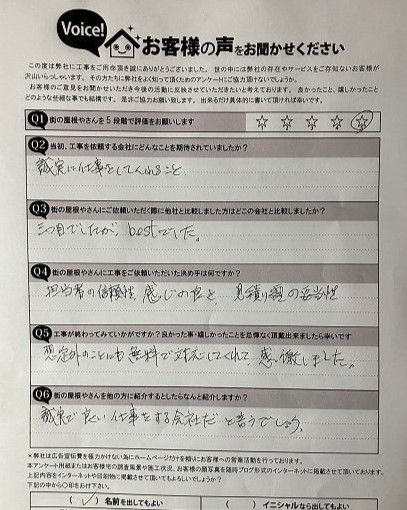 Voice!
お客様の声をお聞かせください
この度は弊社に工事をご用命頂き誠にありがとうございました。世の中には弊社の存在やサービスをご存知ないお客様が
沢山いらっしゃいます。その方たちに弊社をよく知って頂くためのアンケートにご協力頂けないでしょうか。
お客様のご意見をお聞かせいただき今後の近況に反映させていただきたいと考えております。良かったこと、嬉しかったこと
どのような些細な事でも結構です。是非ご協力お願い致します。出来るだけ具体的に書いて頂ければ幸いです。
Q1 街の屋根やさんを5段階で評価をお願いします
Q2 当初、工事を依頼する会社にどんなことを期待されていましたか?
誠実に仕事をしてくれること
Q3 街の屋根やさんにご依頼いただく際に他社と比較しました方はどこの会社と比較しましたか?
三つ目でしたが、bestでした。
Q4 街の屋根やさんに工事をご依頼いただいた決め手は何ですか?
担当者の信頼性、感じの良さ、見積り額の妥当性
Q5 工事が終わってみていかがですか?良かった事・嬉しかったことを忌憚なく頂戴出来ましたら幸いです
想定外のことにも無料で対応してくれて、感激しました。
Q6 街の屋根やさんを他の方に紹介するとしたらなんと紹介しますか?
誠実で良い仕事をする会社だと言うでしょう。
*弊社は広告宣伝費を極力かけない為にホームページだけを頼りにお客様への営業活動を行っております。
本アンケート用紙またはお客様宅の調査風景や施工状況、お客様の顔写真を随時ブログ形式のインターネットに掲載させて頂いております。
上記内容をインターネットや印刷物に掲載させて頂いてもよろしいでしょうか?
下記の中から〇印をお付下さい。
( ✓ ) 名前を出してもよい ( ) イニシャルなら出してもよい